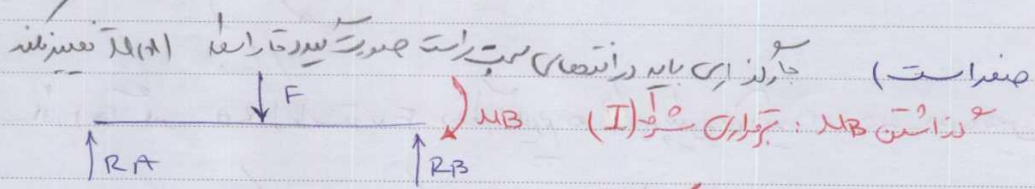 صفر است) بارگذاری باید در انتهای سمت راست صورت گیرد تا رابطه M(x) تغییر نکند
F
MB گذاشتن MB : برقراری شرط (I)
RA RB